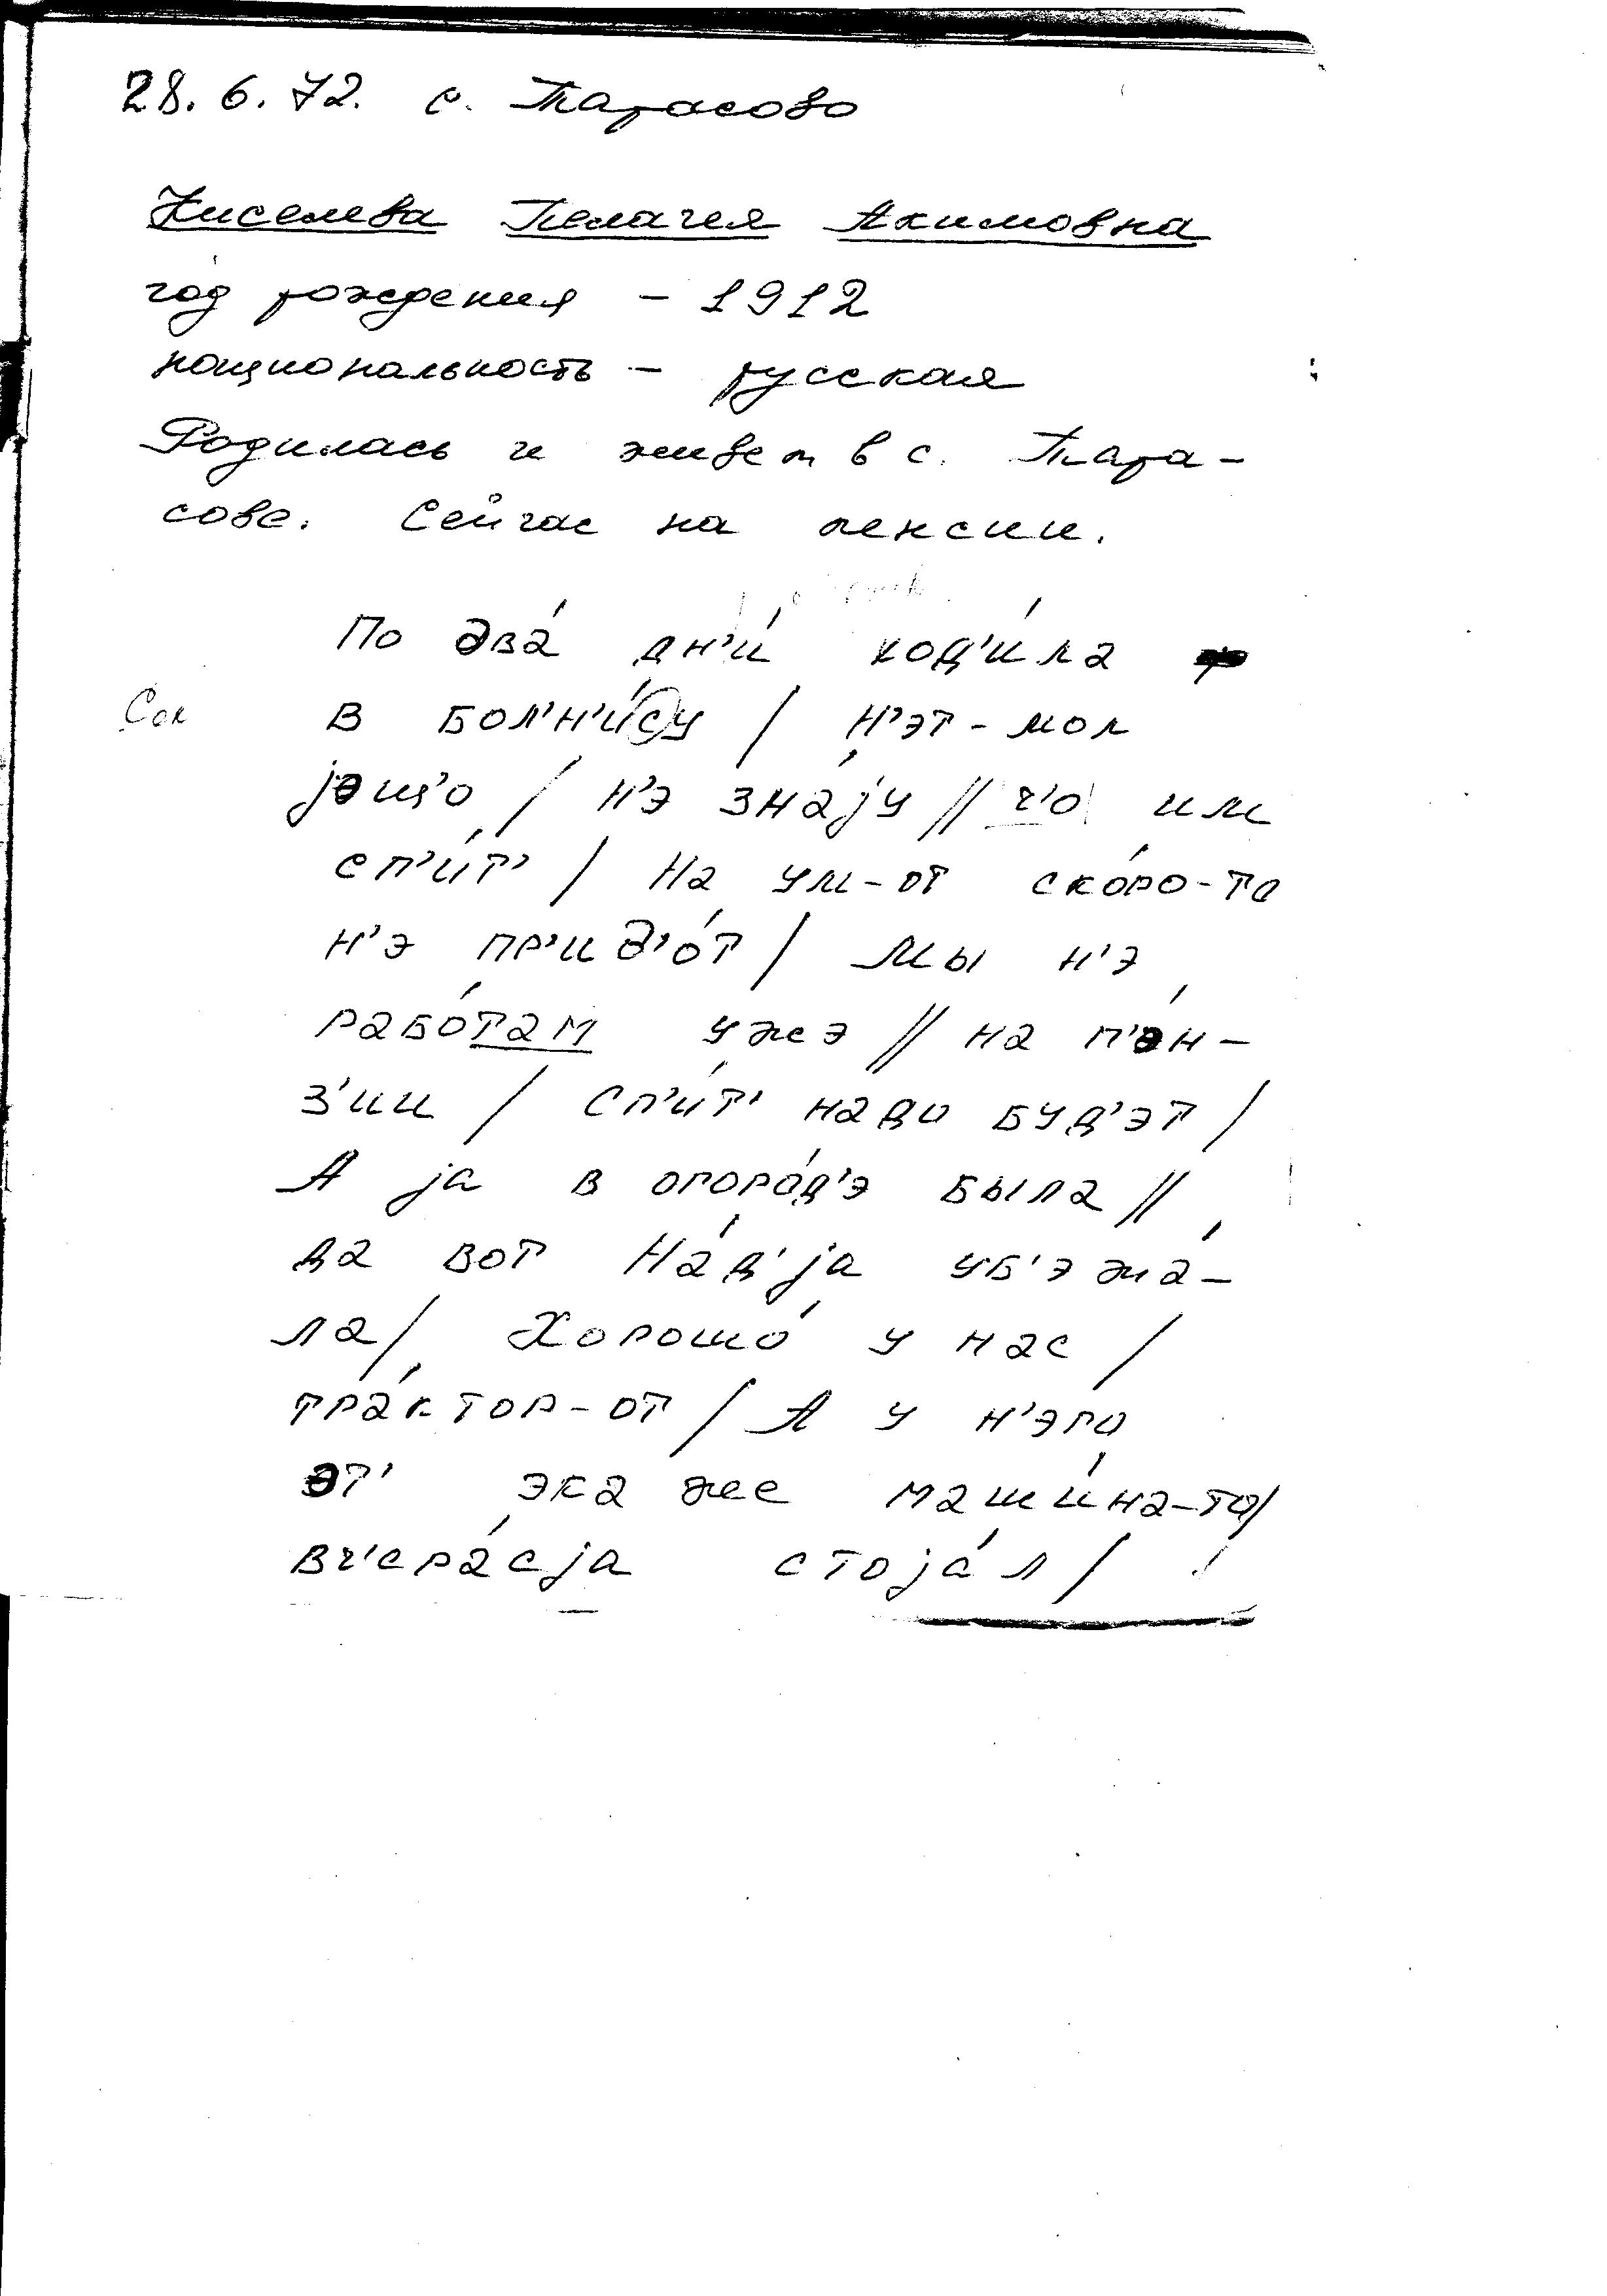 28. 6. 72. с. Тарасово
Киселева Пелагея Акимовна
год рождения – 1912
национальность – русская
Родилась и живет в с. Тара-
сове. Сейчас на пенсии.
По два́ дн'и́ ход'и́ла
Сок в бол'н'и́су / н'эт-мол
jэшʼо / н'э зна́jу // ч'о им
сп'ит' / На ум-от ско́ро-то
н'э пр'ид'о́т / Мы н'э
рабо́там ужэ // на п'э́н-
з'ии / сп'и́т' надо буд'эт /
А jа в огоро́д'э была //
да вот На́д'jа уб'эжа́-
ла / Хорошо́ у нас /
тра́ктор-от / А у н'эго
эт' эка же маши́на-то /
вч'ера́сjа стоjа́л /